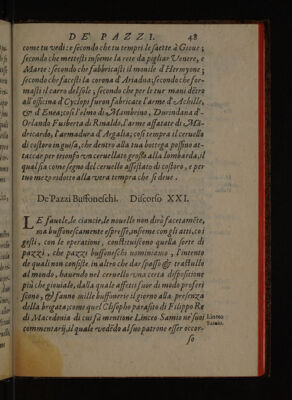 DE' PAZZI. 48
come tu vedi: e secondo che tu tempri le saette à Gioue;
secondo che mettesti insieme la rete da pigliar Venere, e
Marte: secondo che fabbricasti il monile d'Hermione;
secondo che facesti la corona d'Ariadna; secondo che for-
masti il carro del sole; secondo che per le tue mani dẽtro
all'officina d'Cyclopi furon fabricate l'arme d'Achille,
& d'Enea; cosi l'elmo di Mambrino, Durindana d'-
Orlando, Fusberta di Rinaldo, l'arme affatate di Mã-
dricardo, l'armadura d'Argalia; cosi tempra il ceruello
di costoro in guisa, che dentro alla tua bottega possino at-
taccar per trionfo vn ceruellato grosso alla lombarda, il
qual sia come segno del ceruello assestato di costoro, e per
tuo mezo ridotto alla vera tempra che si deue.
De' Pazzi Buffoneschi. Discorso XXI.
LE fauole, le ciancie, le nouelle non dirò facetamẽte,
ma buffonescamente espresse, insieme con gli atti, co i
gesti, con le operationi, constituiscono quella sorte di
pazzi, che pazzi buffoneschi nominiamo, l'intento
de quali non consiste in altro che dar spasso & trastulli
al mondo, hauendo nel ceruello vna certa dispositione
più che giouiale, dalla quale affetti fuor di modo proferi
scono, & fanno mille buffonerie il giorno alla presenza
della brigata; come quel Clisopho parasito di Filippo Re
di Macedonia di cui fà mentione Linceo Samio ne' suoi
Linceo
Samio.
commentarij, il quale vedẽdo al suo patrone esser occor-
so